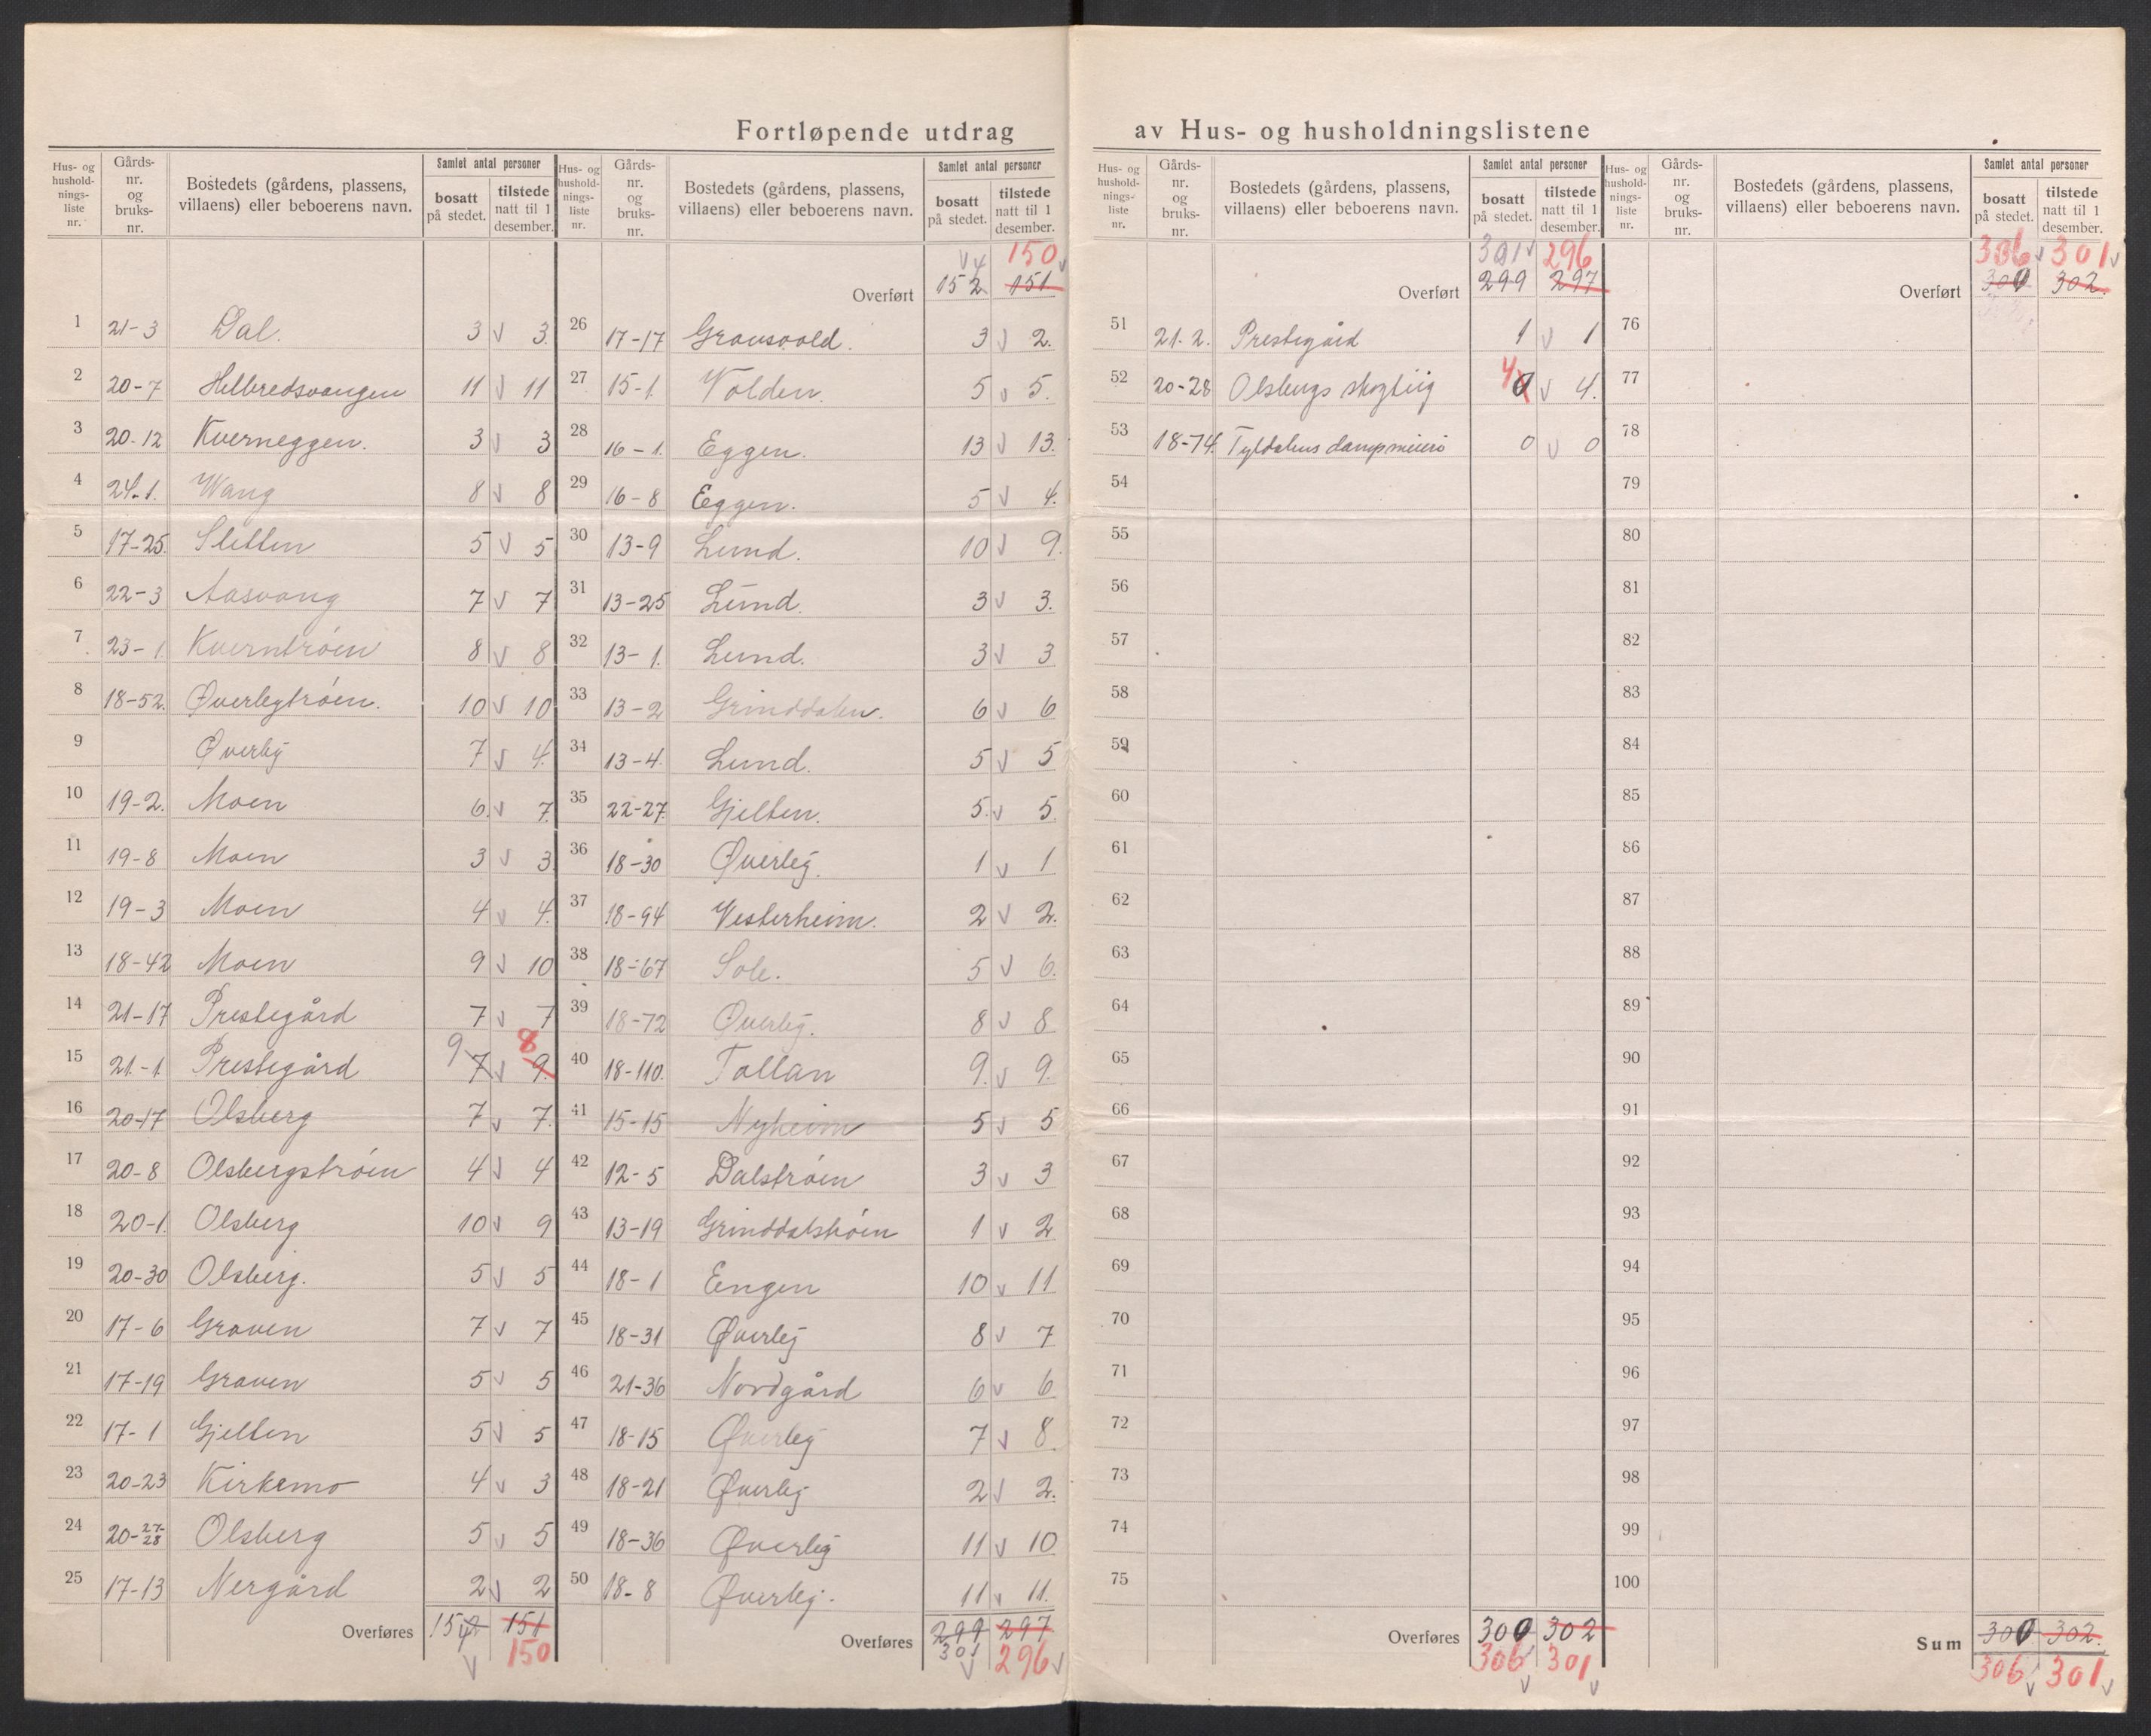 Fortløpende utdrag av Hus- og husholdningslistene
Hus- og hushold-nings-liste nr. Gårds-nr. og bruks-nr. Bostedets (gårdens, plassens, villaens) eller beboerens navn. Samlet antal personer bosatt på stedet. tilstede natt til 1 desember.
1 21-3 Dal. 3 v 3.
2 20-7 Helbredsvangen 11 v 11
3 20-12 Kverneggen. 3 v 3
4 24-1. Wang 8 v 8
5 17-25. Sletten 5 v 5
6 22-3 Aasvang 7 v 7
7 23-1 Kverntrøen 8 v 8
8 18-52. Øverlegtrøen. 10 v 10
9 Øverlij 7 v 4.
10 19-2. Moen 6. v 7.
11 19-8 Moen 3 v 3.
12 19-3 Moen 4 v 4.
13 18-42 Moen 9 v 10
14 21-17 Prestegård 7 v 7
15 21.-1 Prestegård 9 7 v 9. 8
16 20-17 Olsberg 7 v 7.
17 20-8 Olsbergstrøen 4 v 4
18 20-1. Olsberg 10 v 9
19 20-30 Olsberg. 5 v 5
20 17-6 Graven 7 v 7
21 17-19 Graven 5 v 5
22 17-1 Gjelten 5 v 5
23 20-23 Kirkemo 4 v 3
24 20-27-28 Olsberg 5 v 5
25 17-13 Nergård 2 v 2
Overføres 152 4 v 151 150
Hus- og hushold-nings-liste nr. Gårds-nr. og bruks-nr. Bostedets (gårdens, plassens, villaens) eller beboerens navn. Samlet antal personer bosatt på stedet. tilstede natt til 1 desember.
v 4 150 v
Overført 152 151
26 17-17 Gravsvold. 3 v 2.
27 15-1. Volden. 5 v 5.
28 16-1. Eggen. 13 v 13.
29 16-8 Eggen. 5 v 4.
30 13-9 Lund. 10 v 9.
31 13-25 Lund. 3 v 3.
32 13-1. Lund. 3 v 3
33 13-2 Grinddalen. 6 v 6
34 13-4. Lund. 5 v 5
35 22-27. Gjelten. 5. v 5.
36 18-30 Øverlej. 1 v 1
37 18-94 Vesterheim. 2 v 2.
38 18-67 Sole. 5 v 6.
39 18-72 Øverlej. 8 v 8
40 18-110. Tollan 9. v 9.
41 15-15 Nyheim 5 v 5
42 12-5 Dalstrøen 3 v 3
43 13-19 Grinddalstrøen 1 v 2
44 18-1 Eengen 10 v 11
45 18-31 Øverlej 8 v 7
46 21-36 Nordgård 6 v 6
47 18-15 Øverlej 7 v 8.
48 18-21 Øverlej 2 v 2.
49 18-36 Øverlej 11 v 10
50 18-8 Øverlej. 11 v 11.
Overføres 299 297
301 v 296 v
Hus- og hushold-nings-liste nr. Gårds-nr. og bruks-nr. Bostedets (gårdens, plassens, villaens) eller beboerens navn. Samlet antal personer bosatt på stedet. tilstede natt til 1 desember.
301 v 296
Overført 299 297
51 21.2. Prestegård 1 v 1
52 20-28 Olsbergs skogteig 4 0 v 4.
53 18-74. Tyldalens dampmeieri 0 v 0
54
55
56
57
58
59
60
61
62
63
64
65
66
67
68
69
70
71
72
73
74
75
Overføres 300 302
306 v 301 v
Hus- og hushold-nings-liste nr. Gårds-nr. og bruks-nr. Bostedets (gårdens, plassens, villaens) eller beboerens navn. Samlet antal personer bosatt på stedet. tilstede natt til 1 desember.
306 v 301 v
Overført 300 302.
76
77
78
79
80
81
82
83
84
85
86
87
88
89
90
91
92
93
94
95
96
97
98
99
100
Sum 300 302.
306 v 301 v